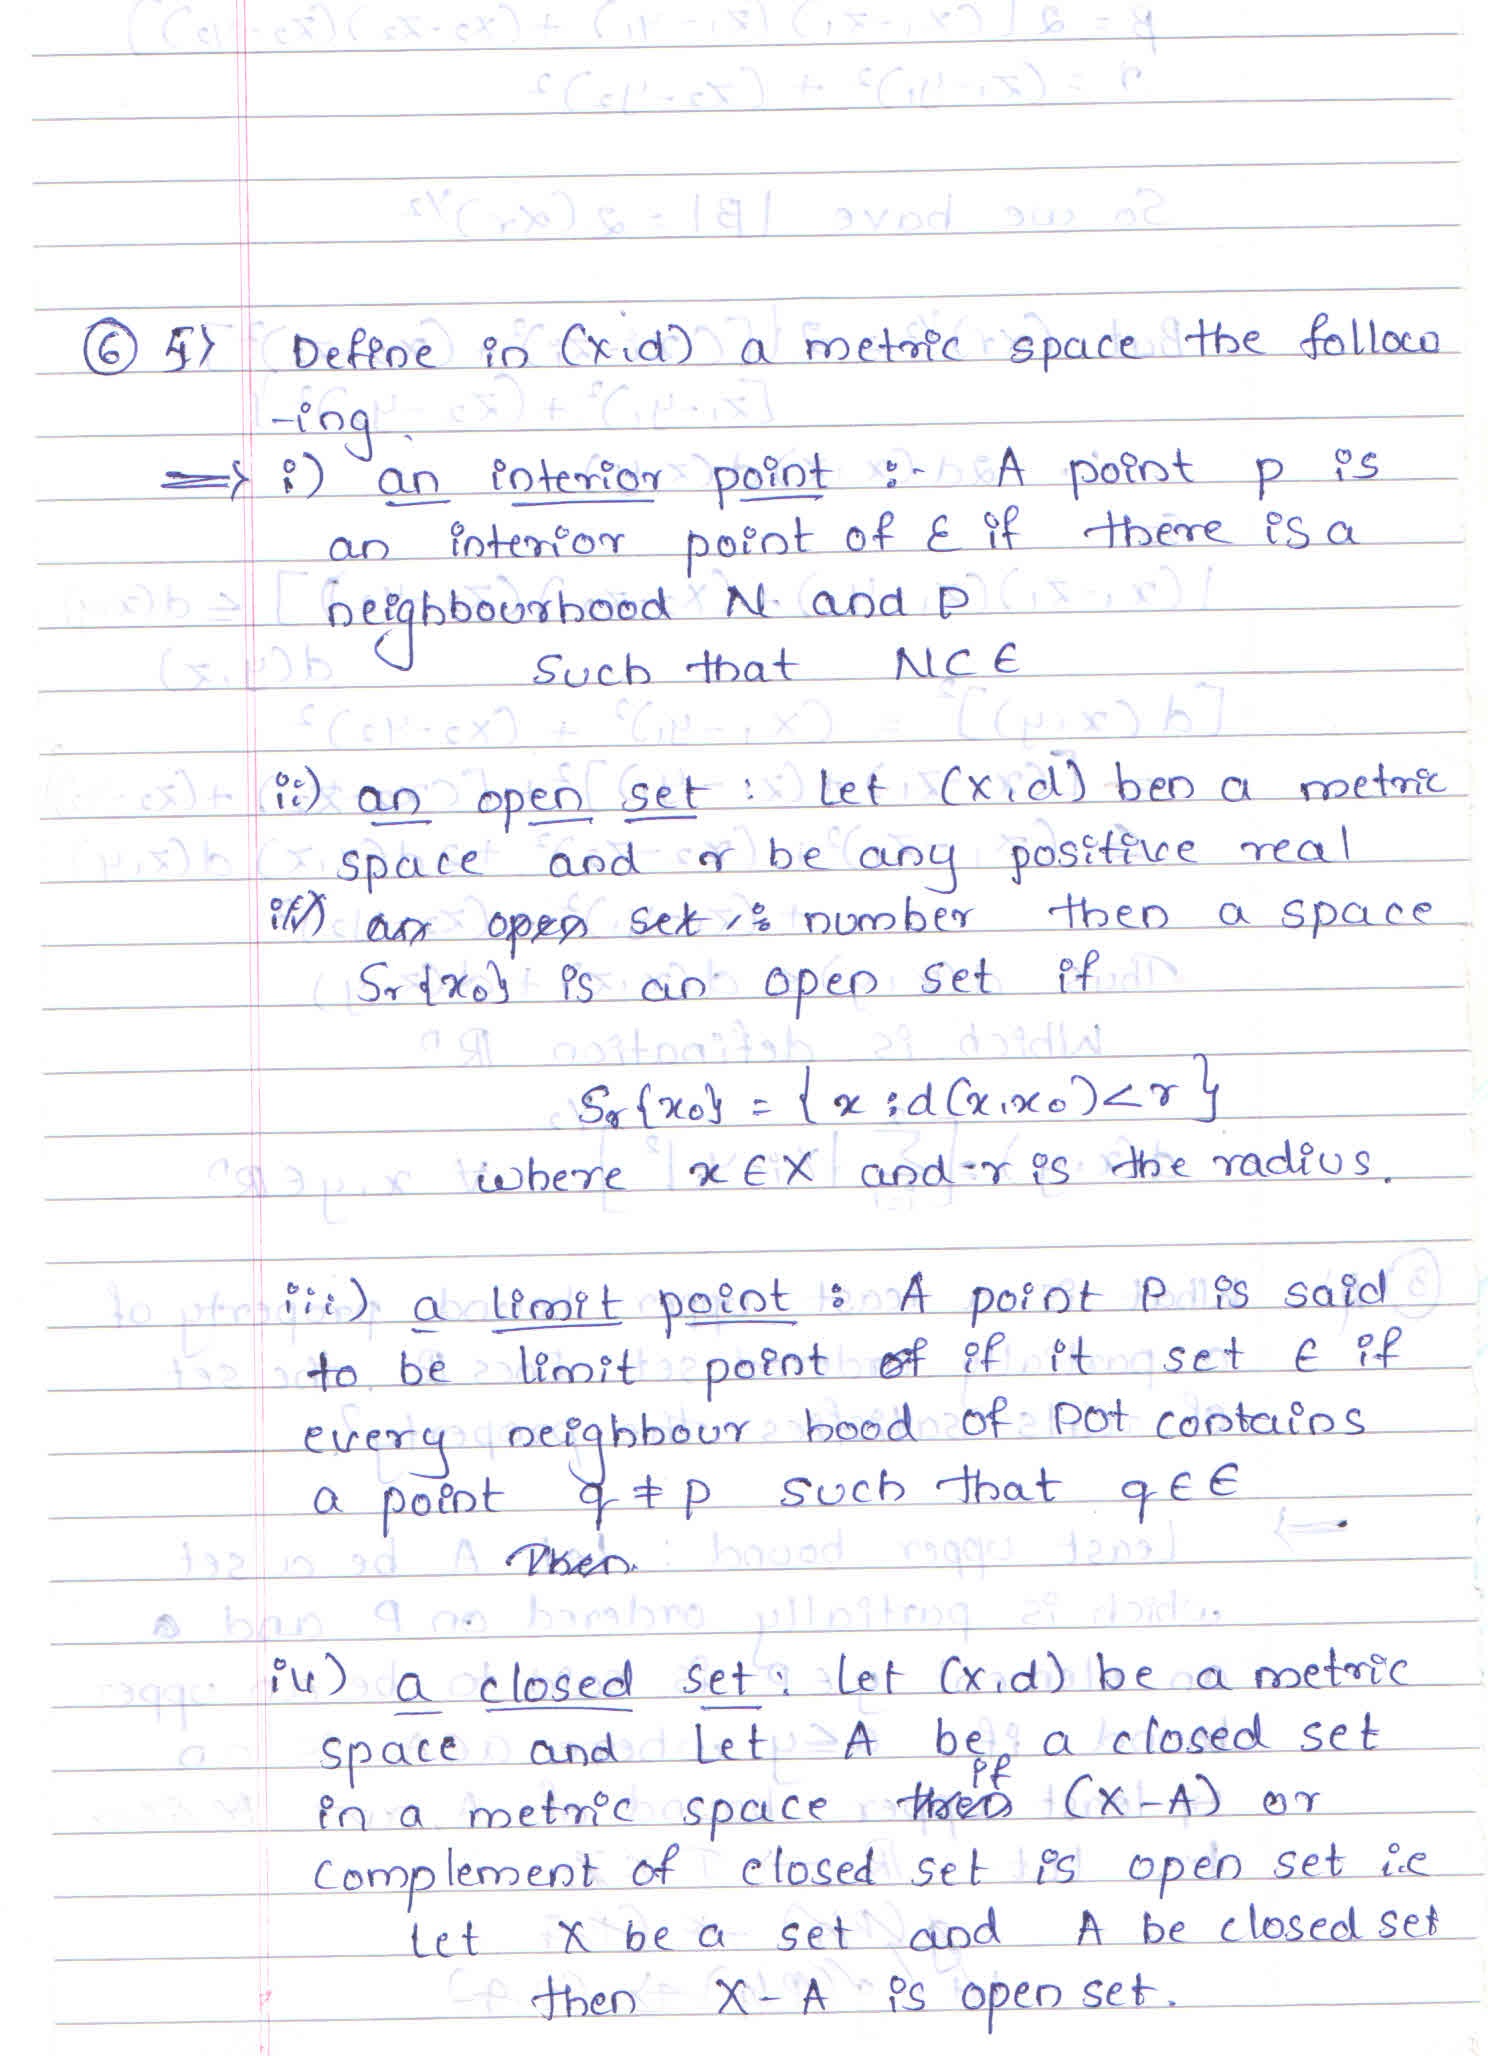 ⑥ 5> Define in (X,d) a metric space the follow
-ing.
⇒ i) an interior point :- A point p is
an interior point of E if there is a
neighbourhood N. and p
such that N⊂E
ii) an open set : Let (X,d) ben a metric
space and r be any positive real
iii) an open set : number then a space
Sr{x0} is an open set if
Sr{x0} = {x : d(x,x0) < r}
where x ∈ X and r is the radius.
iii) a limit point : A point P is said
to be limit point of if it set E if
every neighbour hood of pot contains
a point q ≠ p such that q ∈ E
Then.
iv) a closed set : Let (X,d) be a metric
space and Let A be a closed set
in a metric space then if (X-A) or
complement of closed set is open set i.e
Let X be a set and A be closed set
then X-A is open set.